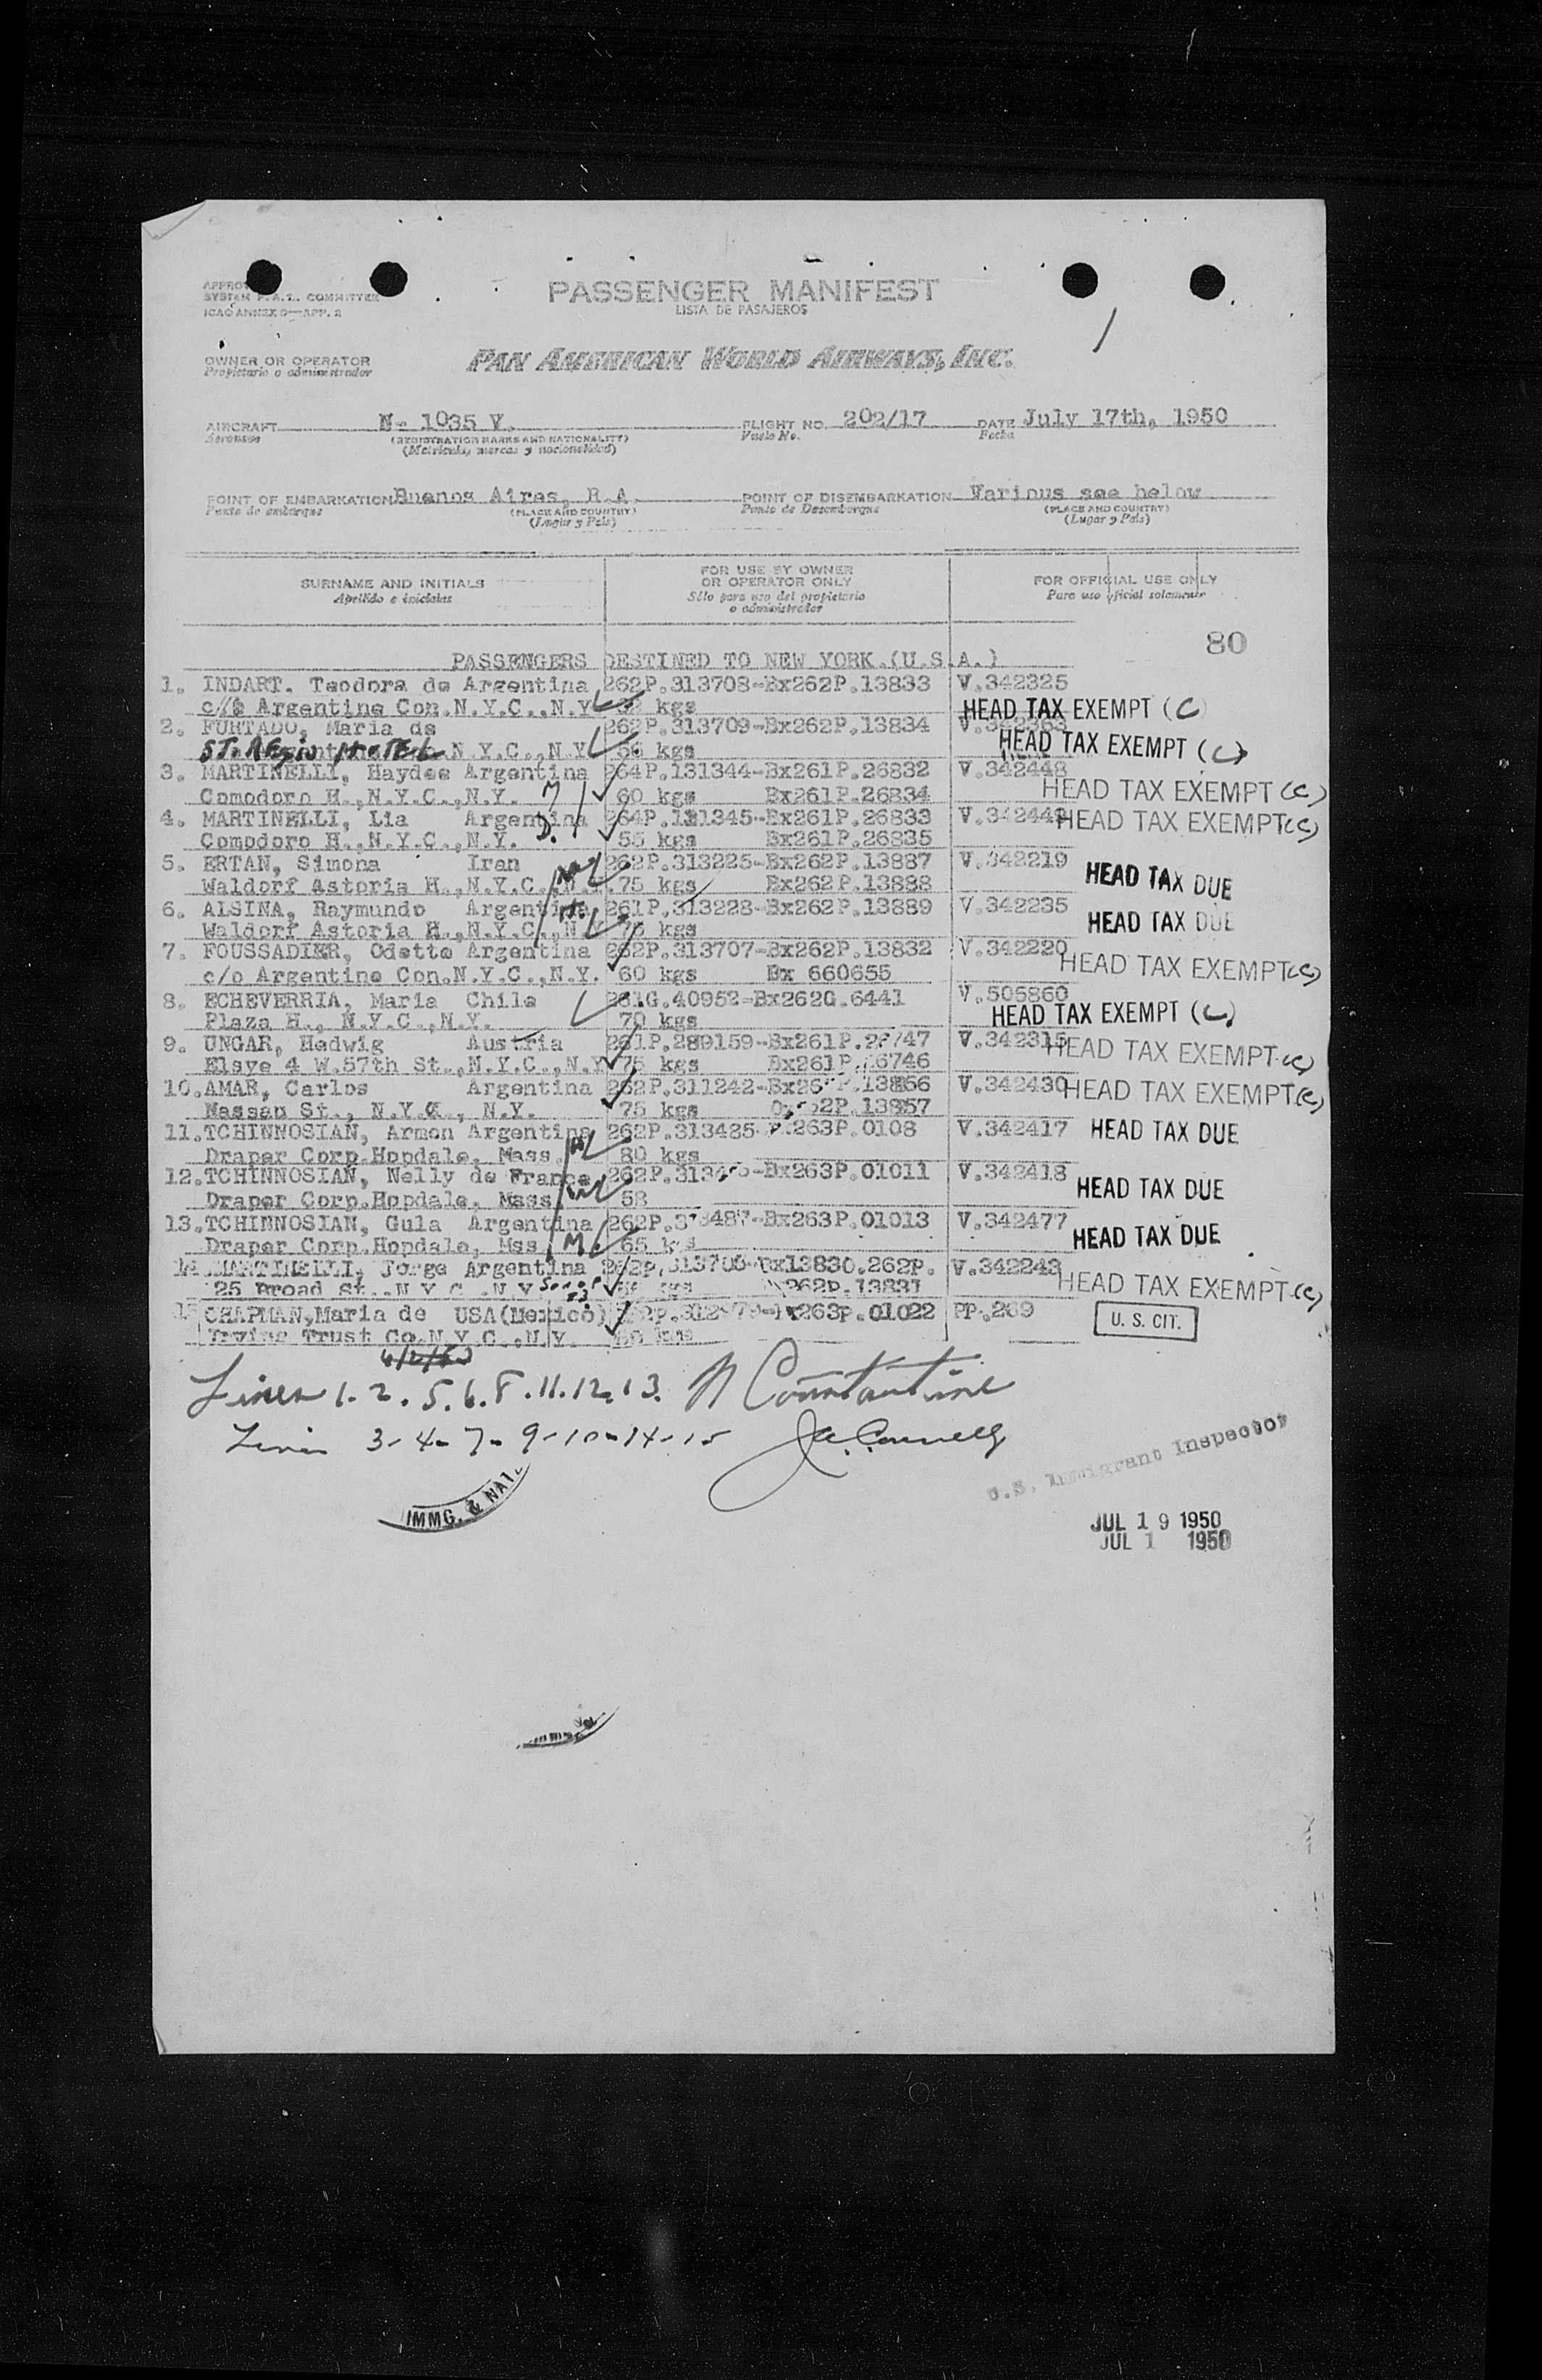 SYSTEM F.A.L. COMMITTEE
ICAO ANNEX 9—APP. 2
PASSENGER MANIFEST
LISTA DE PASAJEROS
OWNER OR OPERATOR
Propietario o administrador
PAN AMERICAN WORLD AIRWAYS, INC.
AIRCRAFT N- 1035 V. FLIGHT NO. 202/17 DATE July 17th, 1950
Aeronave (REGISTRATION MARKS AND NATIONALITY) Vuelo No. Fecha
(Matricula, marcas y nacionalidad)
POINT OF EMBARKATION Buenos Aires, R.A. POINT OF DISEMBARKATION Various see below
Punto de embarque (PLACE AND COUNTRY) Punto de Desembarque (PLACE AND COUNTRY)
(Lugar y Pais) (Lugar y Pais)
SURNAME AND INITIALS
Apellido e iniciales
FOR USE BY OWNER
OR OPERATOR ONLY
Sólo para uso del propietario
o administrador
FOR OFFICIAL USE ONLY
Para uso oficial solamente
80
PASSENGERS DESTINED TO NEW YORK.(U.S.A.)
1. INDART. Teodora de Argentina 262P.313708-Ex262P.13833 V.342325
c/o Argentine Con.N.Y.C.,N.Y kgs HEAD TAX EXEMPT (C)
2. FURTADO, Maria de 262P.313709-Ex262P.13834
ST. REGIS HOTEL N.Y.C.,N.Y 56 kgs HEAD TAX EXEMPT (C)
3. MARTINELLI, Haydee Argentina 264P.131344-Ex261P.26832 V.342448
Comodoro H.,N.Y.C.,N.Y. M 60 kgs Ex261P.26834 HEAD TAX EXEMPT (C)
4. MARTINELLI, Lia Argentina 264P.131345-Ex261P.26833 V.342449 HEAD TAX EXEMPT (C)
Comodoro H.,N.Y.C.,N.Y. D. 55 kgs Ex261P.26835
5. ERTAN, Simona Iran 262P.313225-Ex262P.13887 V.342219
Waldorf Astoria H.,N.Y.C.,N.Y. 75 kgs Ex262P.13888 HEAD TAX DUE
6. ALSINA, Raymundo Argentina 261P.313228-Ex262P.13889 V.342235
Waldorf Astoria H.,N.Y.C.,N.Y 75 kgs HEAD TAX DUE
7. FOUSSADIER, Odette Argentina 262P.313707-Ex262P.13832 V.342220
c/o Argentine Con.N.Y.C.,N.Y. 60 kgs Ex 660655 HEAD TAX EXEMPT (C)
8. ECHEVERRIA, Maria Chile 261G.40952-Ex262G.6441 V.505860
Plaza H., N.Y.C.,N.Y. 70 kgs HEAD TAX EXEMPT (C)
9. UNGAR, Hedwig Austria 261P.289159-Ex261P. V.342315 HEAD TAX EXEMPT (C)
Elsye 4 W.57th St.,N.Y.C.,N.Y 75 kgs Ex261P.
10.AMAR, Carlos Argentina 262P.311242- V.342430 HEAD TAX EXEMPT (C)
Nassau St., N.Y.C., N.Y. 75 kgs
11.TCHINNOSIAN, Armon Argentina 262P.313485- 263P.0108 V.342417 HEAD TAX DUE
Draper Corp.Hopdale, Mass. H 80 kgs
12.TCHINNOSIAN, Nelly de France -Ex263P.01011 V.342418
Draper Corp.Hopdale, Mass W 58 HEAD TAX DUE
13.TCHINNOSIAN, Gula Argentina -Ex263P.01013 V.342477
Draper Corp.Hopdale, Mss M. 65 kgs HEAD TAX DUE
14.MARTINELLI, Jorge Argentina Ex13830.262P. V.342243
25 Broad St.,N.Y.C.,N.Y HEAD TAX EXEMPT (C)
15 CHAPMAN,Maria de USA(Mexico) 263P.01022 PP.269
Irving Trust Co.N.Y.C.,N.Y. kgs U. S. CIT.
Lines 1. 2. 5. 6. 8. 11. 12. 13. N Constantine
Lines 3-4-7-9-10-14-15
U.S. Immigrant Inspector
IMMG. & NAT.
JUL 19 1950
JUL 1 1950